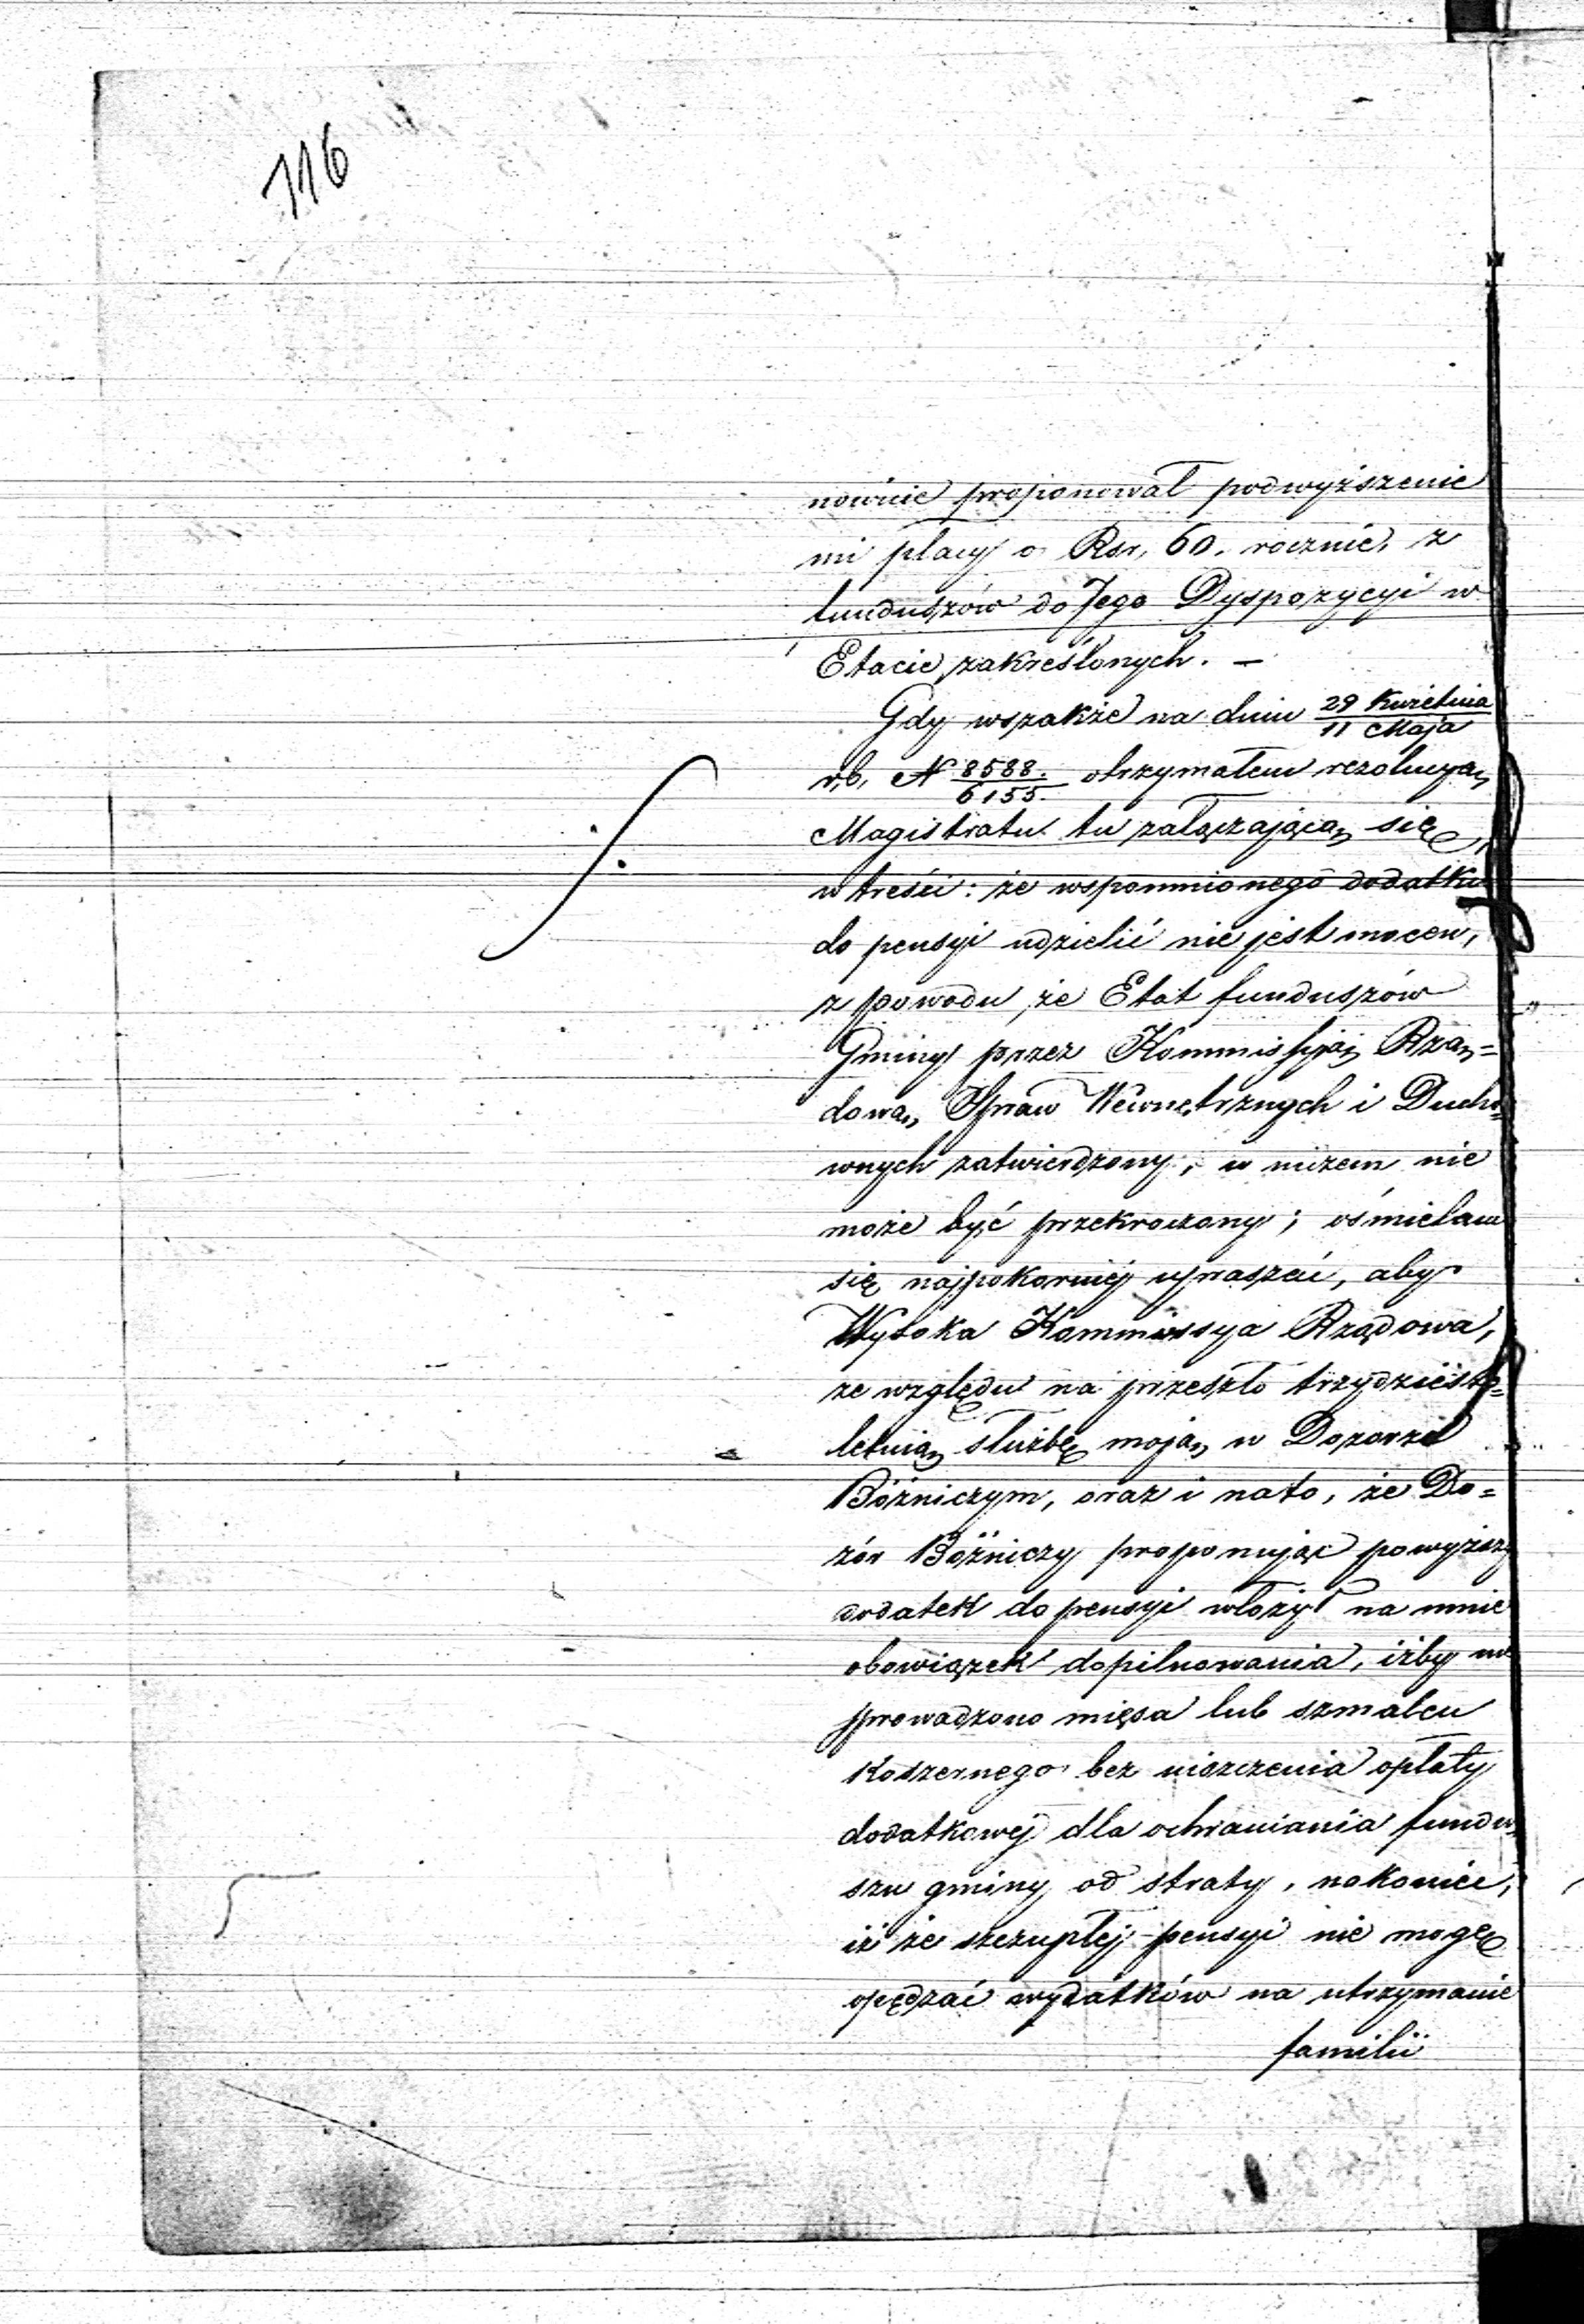 116
nownie proponował podwyższenie
mi płacy o Rsr, 60. rocznie, z
funduszów do Jego Dyspozycyi w
Etacie zakreślonych. —
Gdy wszakże na dniu 29 Kwietnia / 11 Maja
r,b, N 8588. / 6155. otrzymałem rezolucyą
Magistratu tu załączającą się,
w treści: że wspomnionego dodatku
do pensyi udzielić nie jest mocen,
z powodu, że Etat funduszów
Gminy przez Kommissyją Rzą=
dową Spraw Wewnętrznych i Ducho=
wnych zatwierdzony, w niczem nie
może być przekroczony; ośmielam
się najpokorniej upraszać, aby
Wysoka Kommissya Rządowa,
ze względu na przeszło trzydziesto=
letnią służbę moją w Dozorze
Bóżniczym, oraz i nato, że Do=
zór Bóżniczy proponując powyższy
dodatek do pensyi włożył na mnie
obowiązek dopilnowania, iżby nie
prowadzono mięsa lub szmalcu
Koszernego bez uiszczenia opłaty
dodatkowej dla ochraniania fundu=
szu gminy od straty, nakoniec,
iż ze szczupłej pensyi nie mogę
opędzać wydatków na utrzymanie
familii